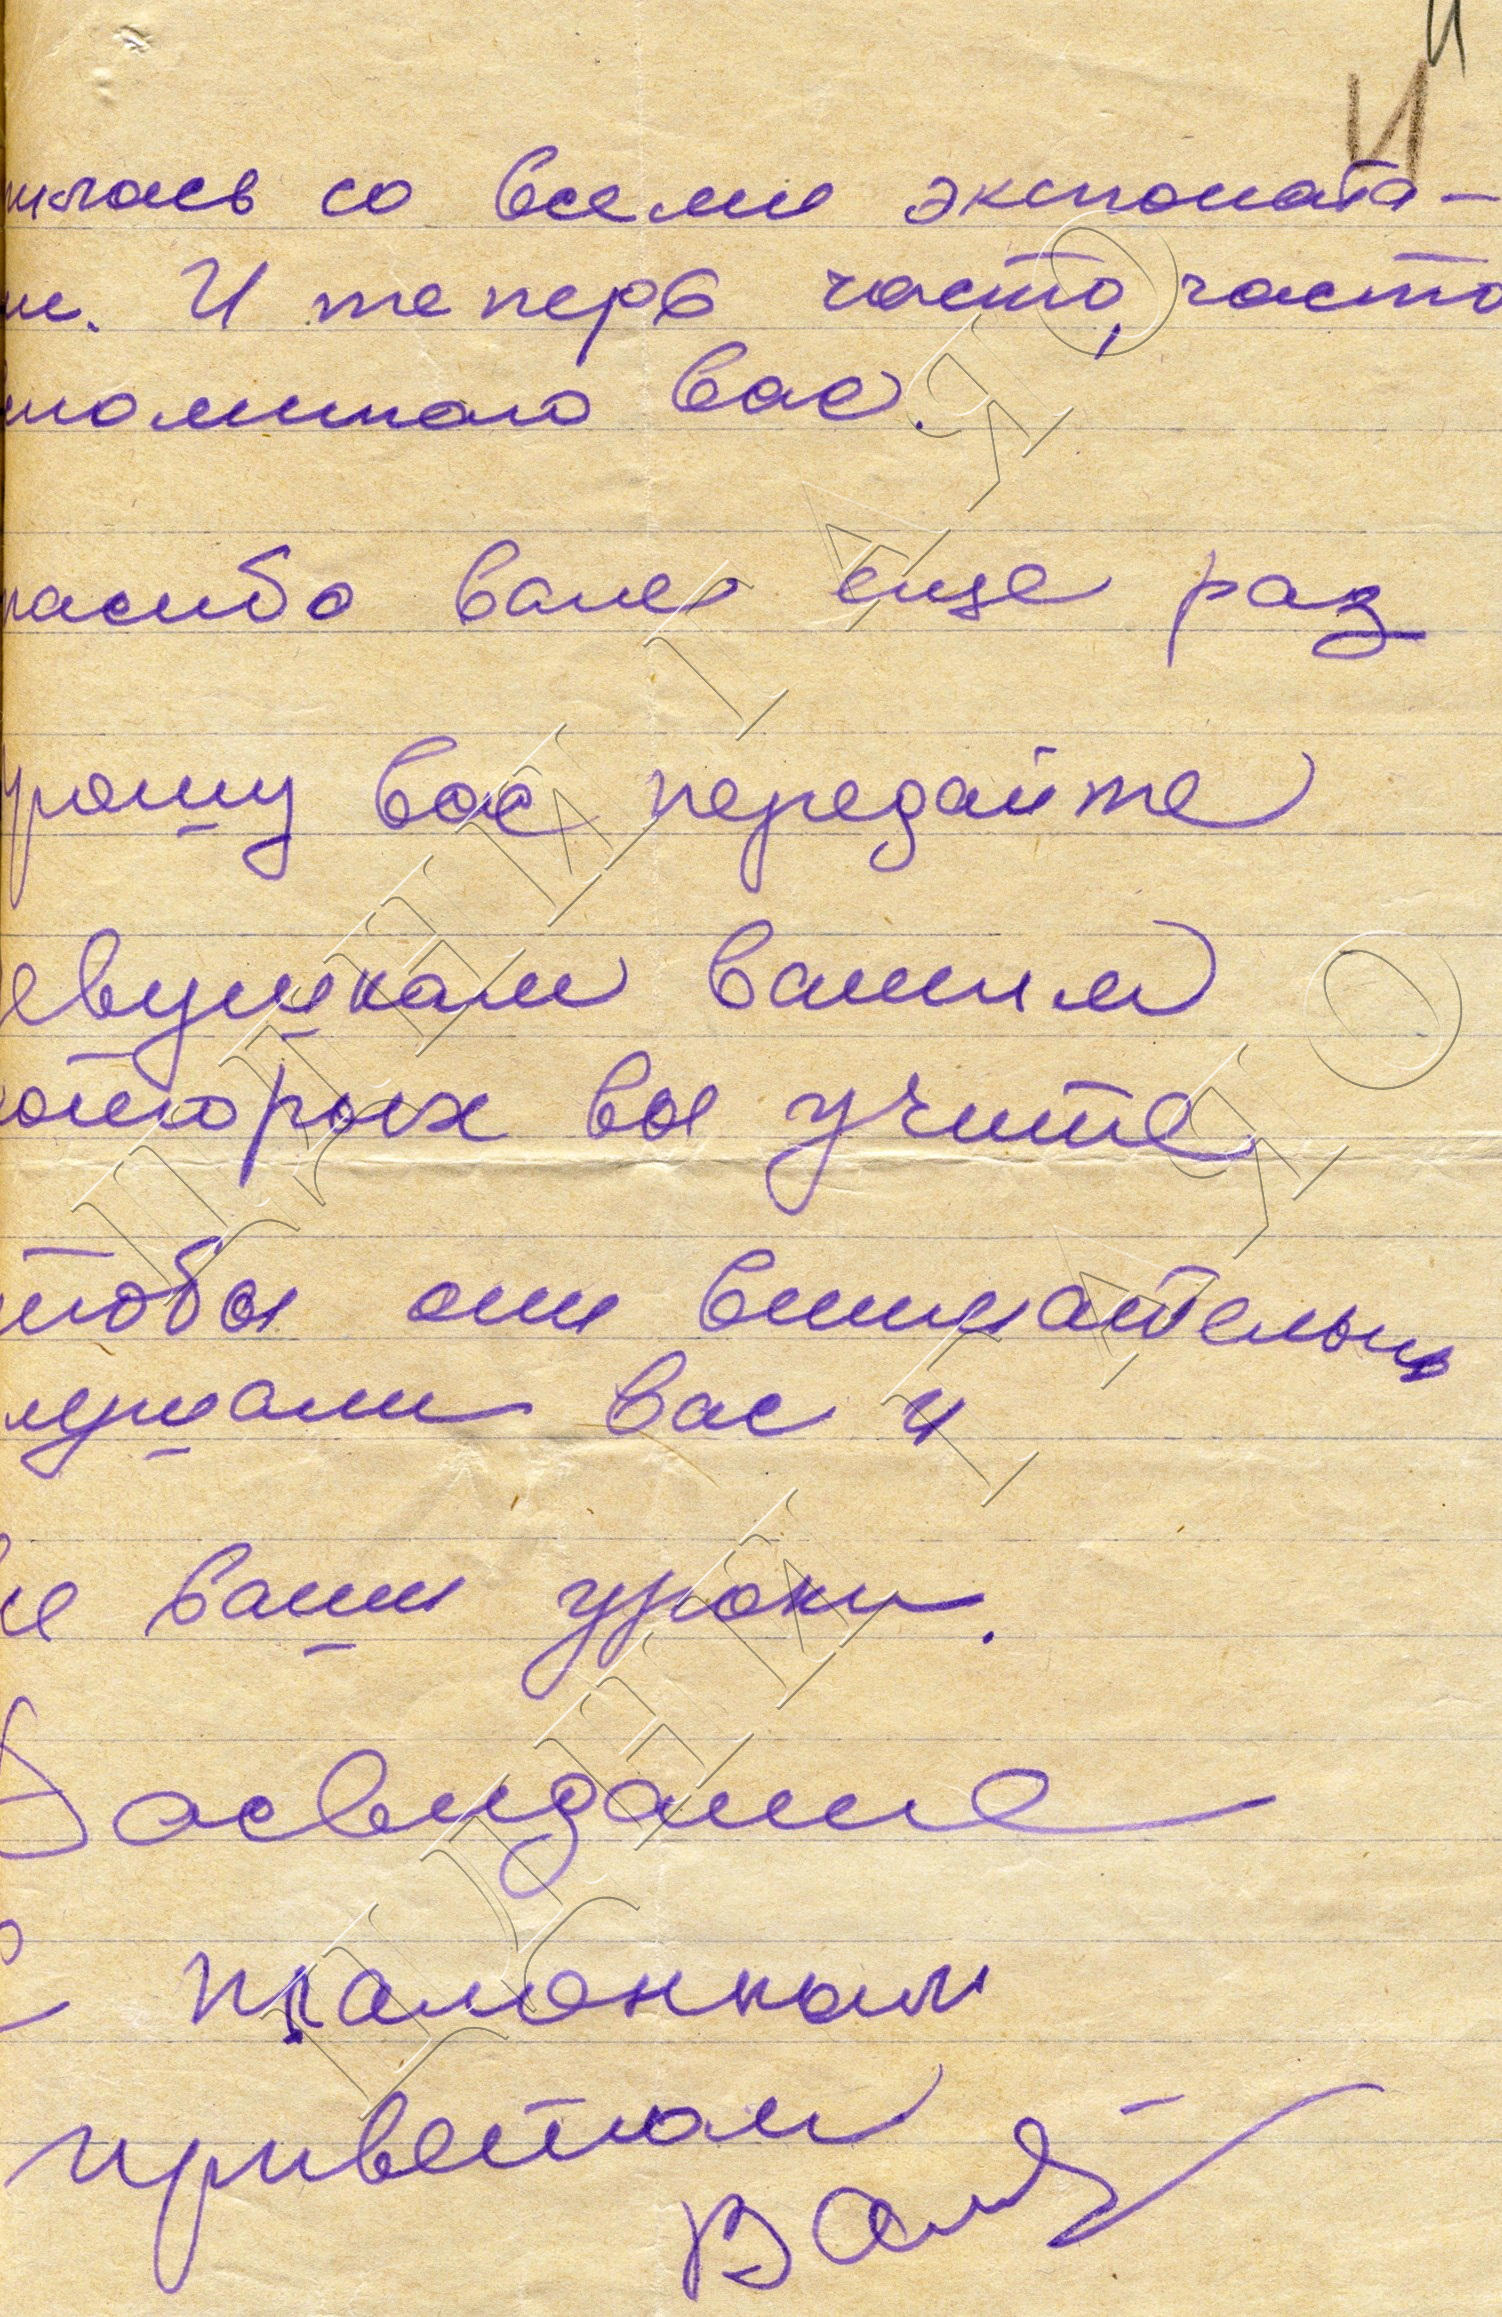 илась со всеми экспоната-
ми. И теперь часто, часто
поминаю вас.
пасибо вам еще раз
рошу вас передайте
евушкам вашим
которых вы учите
чтобы они внимательно
лушали вас и
се ваши уроки.
Досвидание
С пламенным
приветом
Валя
ЦДНИ ГАЯО
ЦДНИ ГАЯО